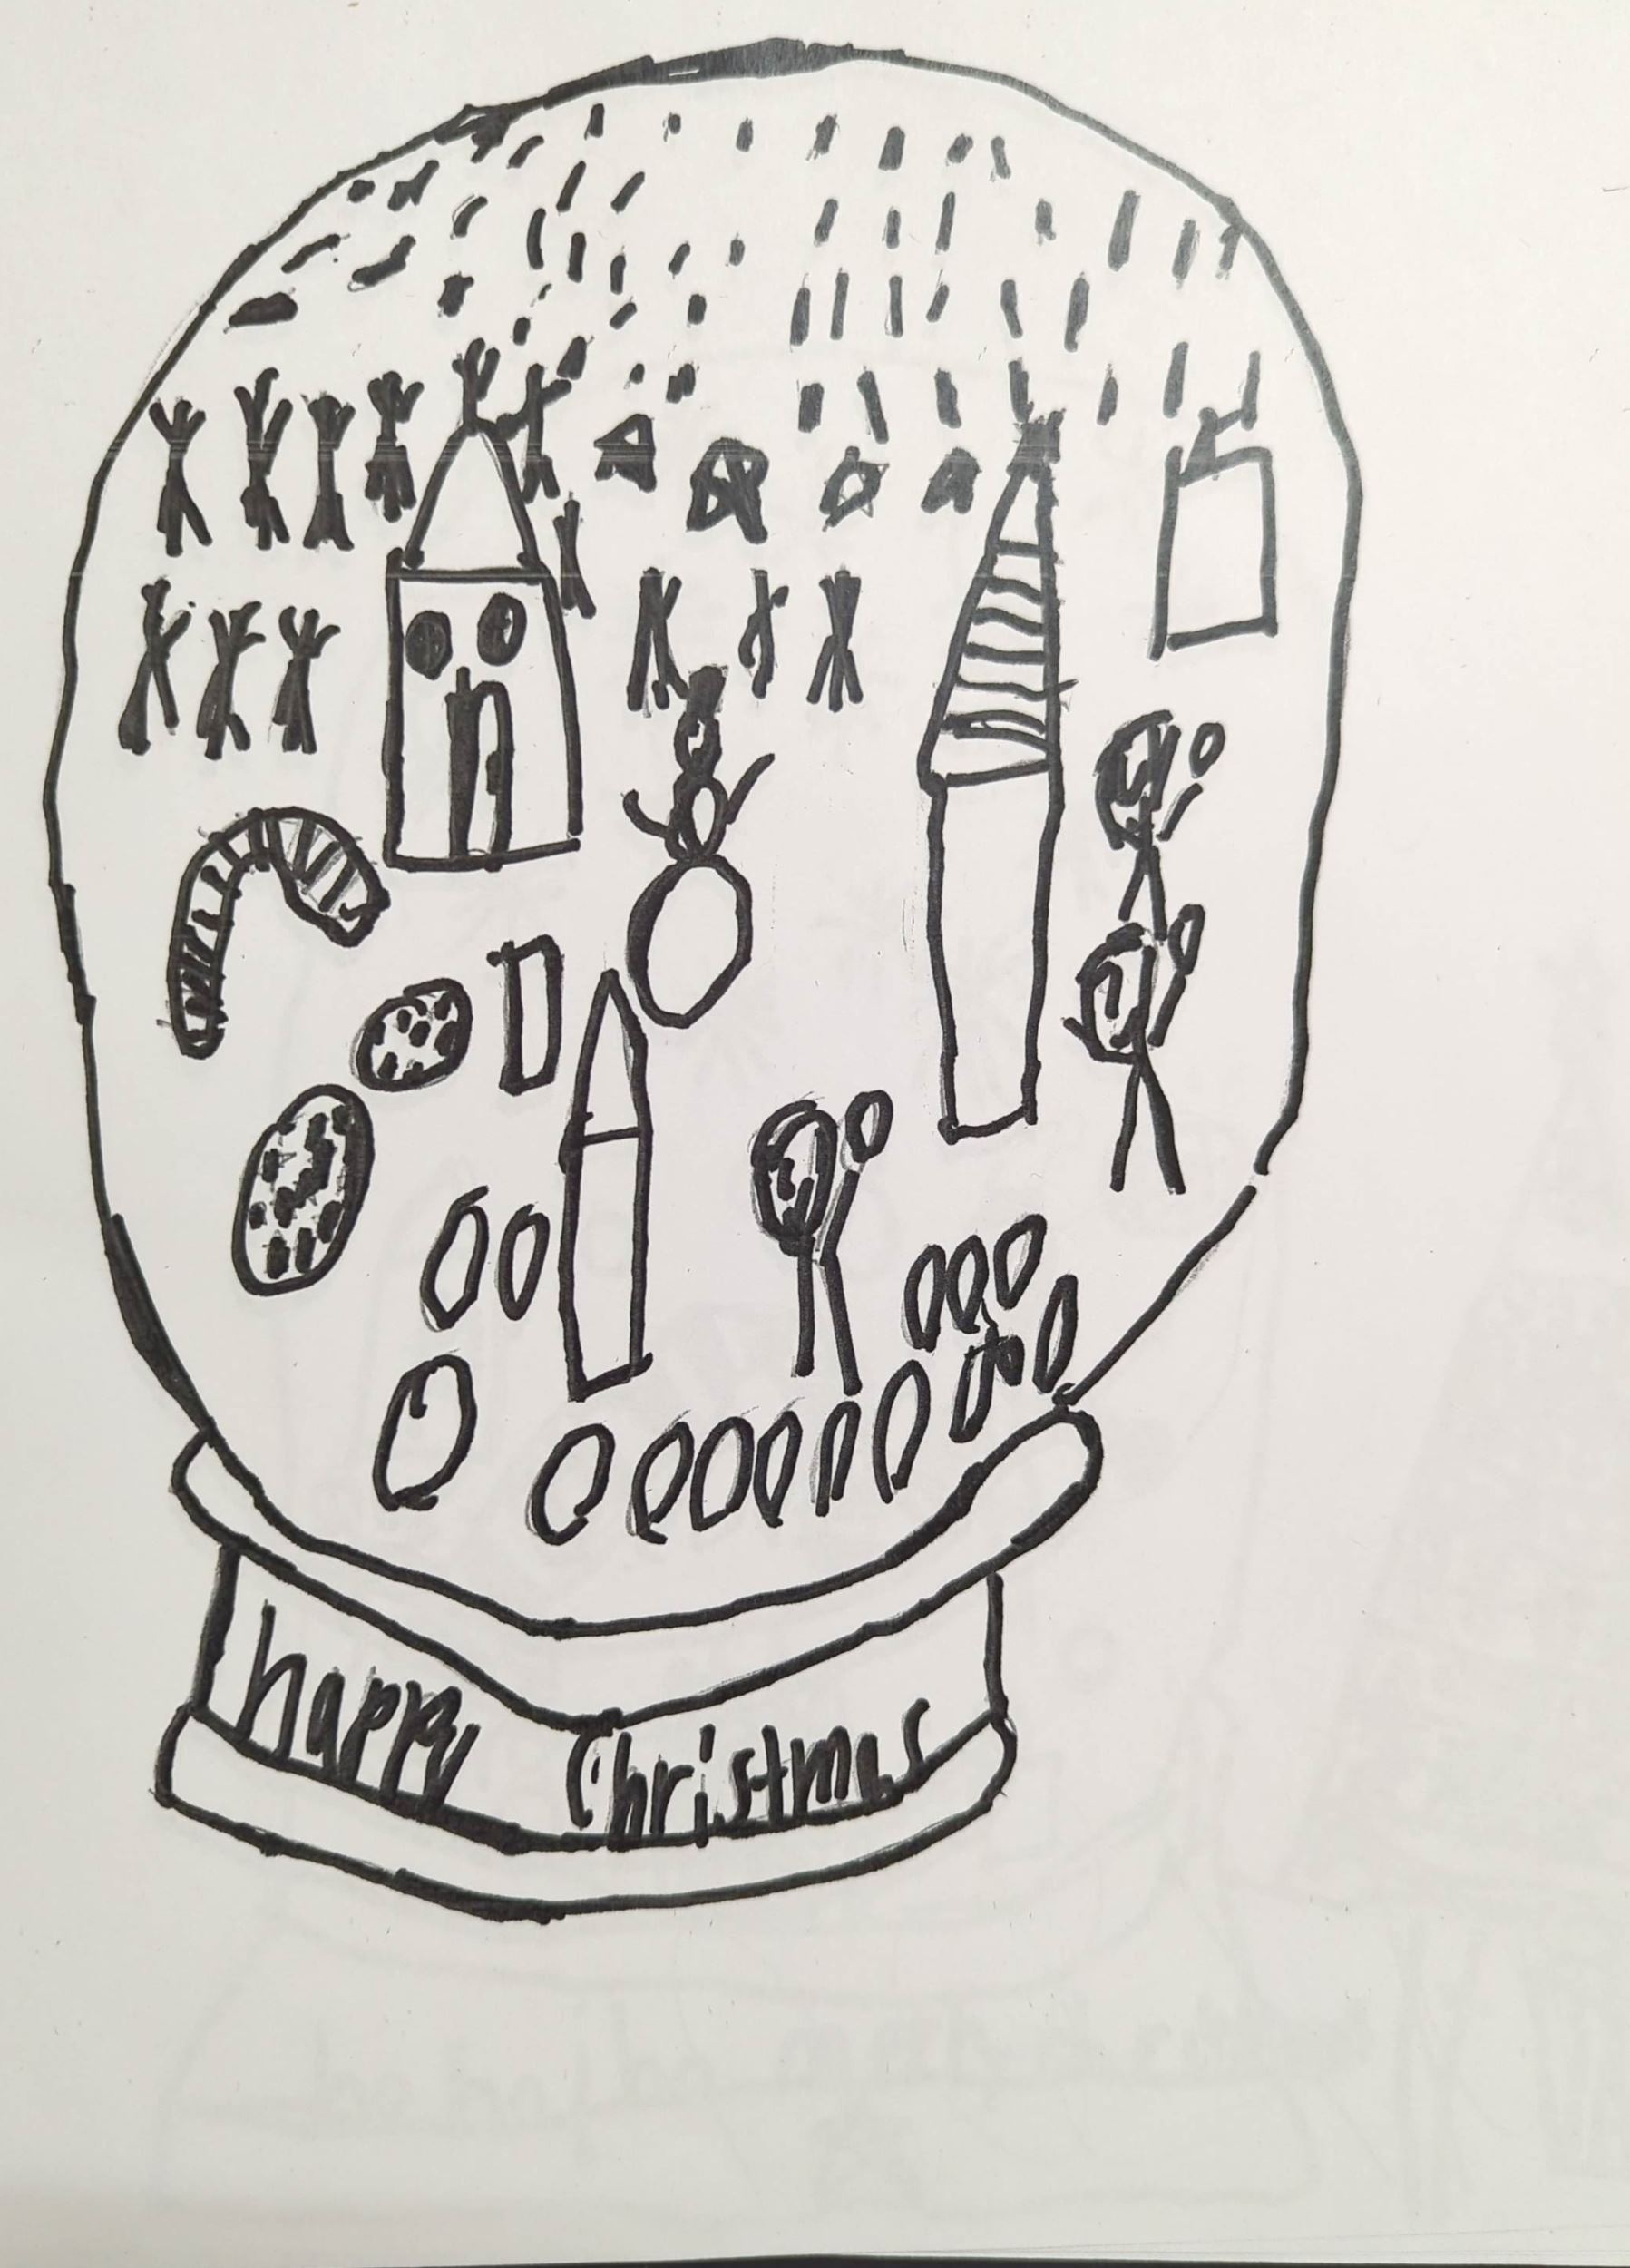 happy Christmas